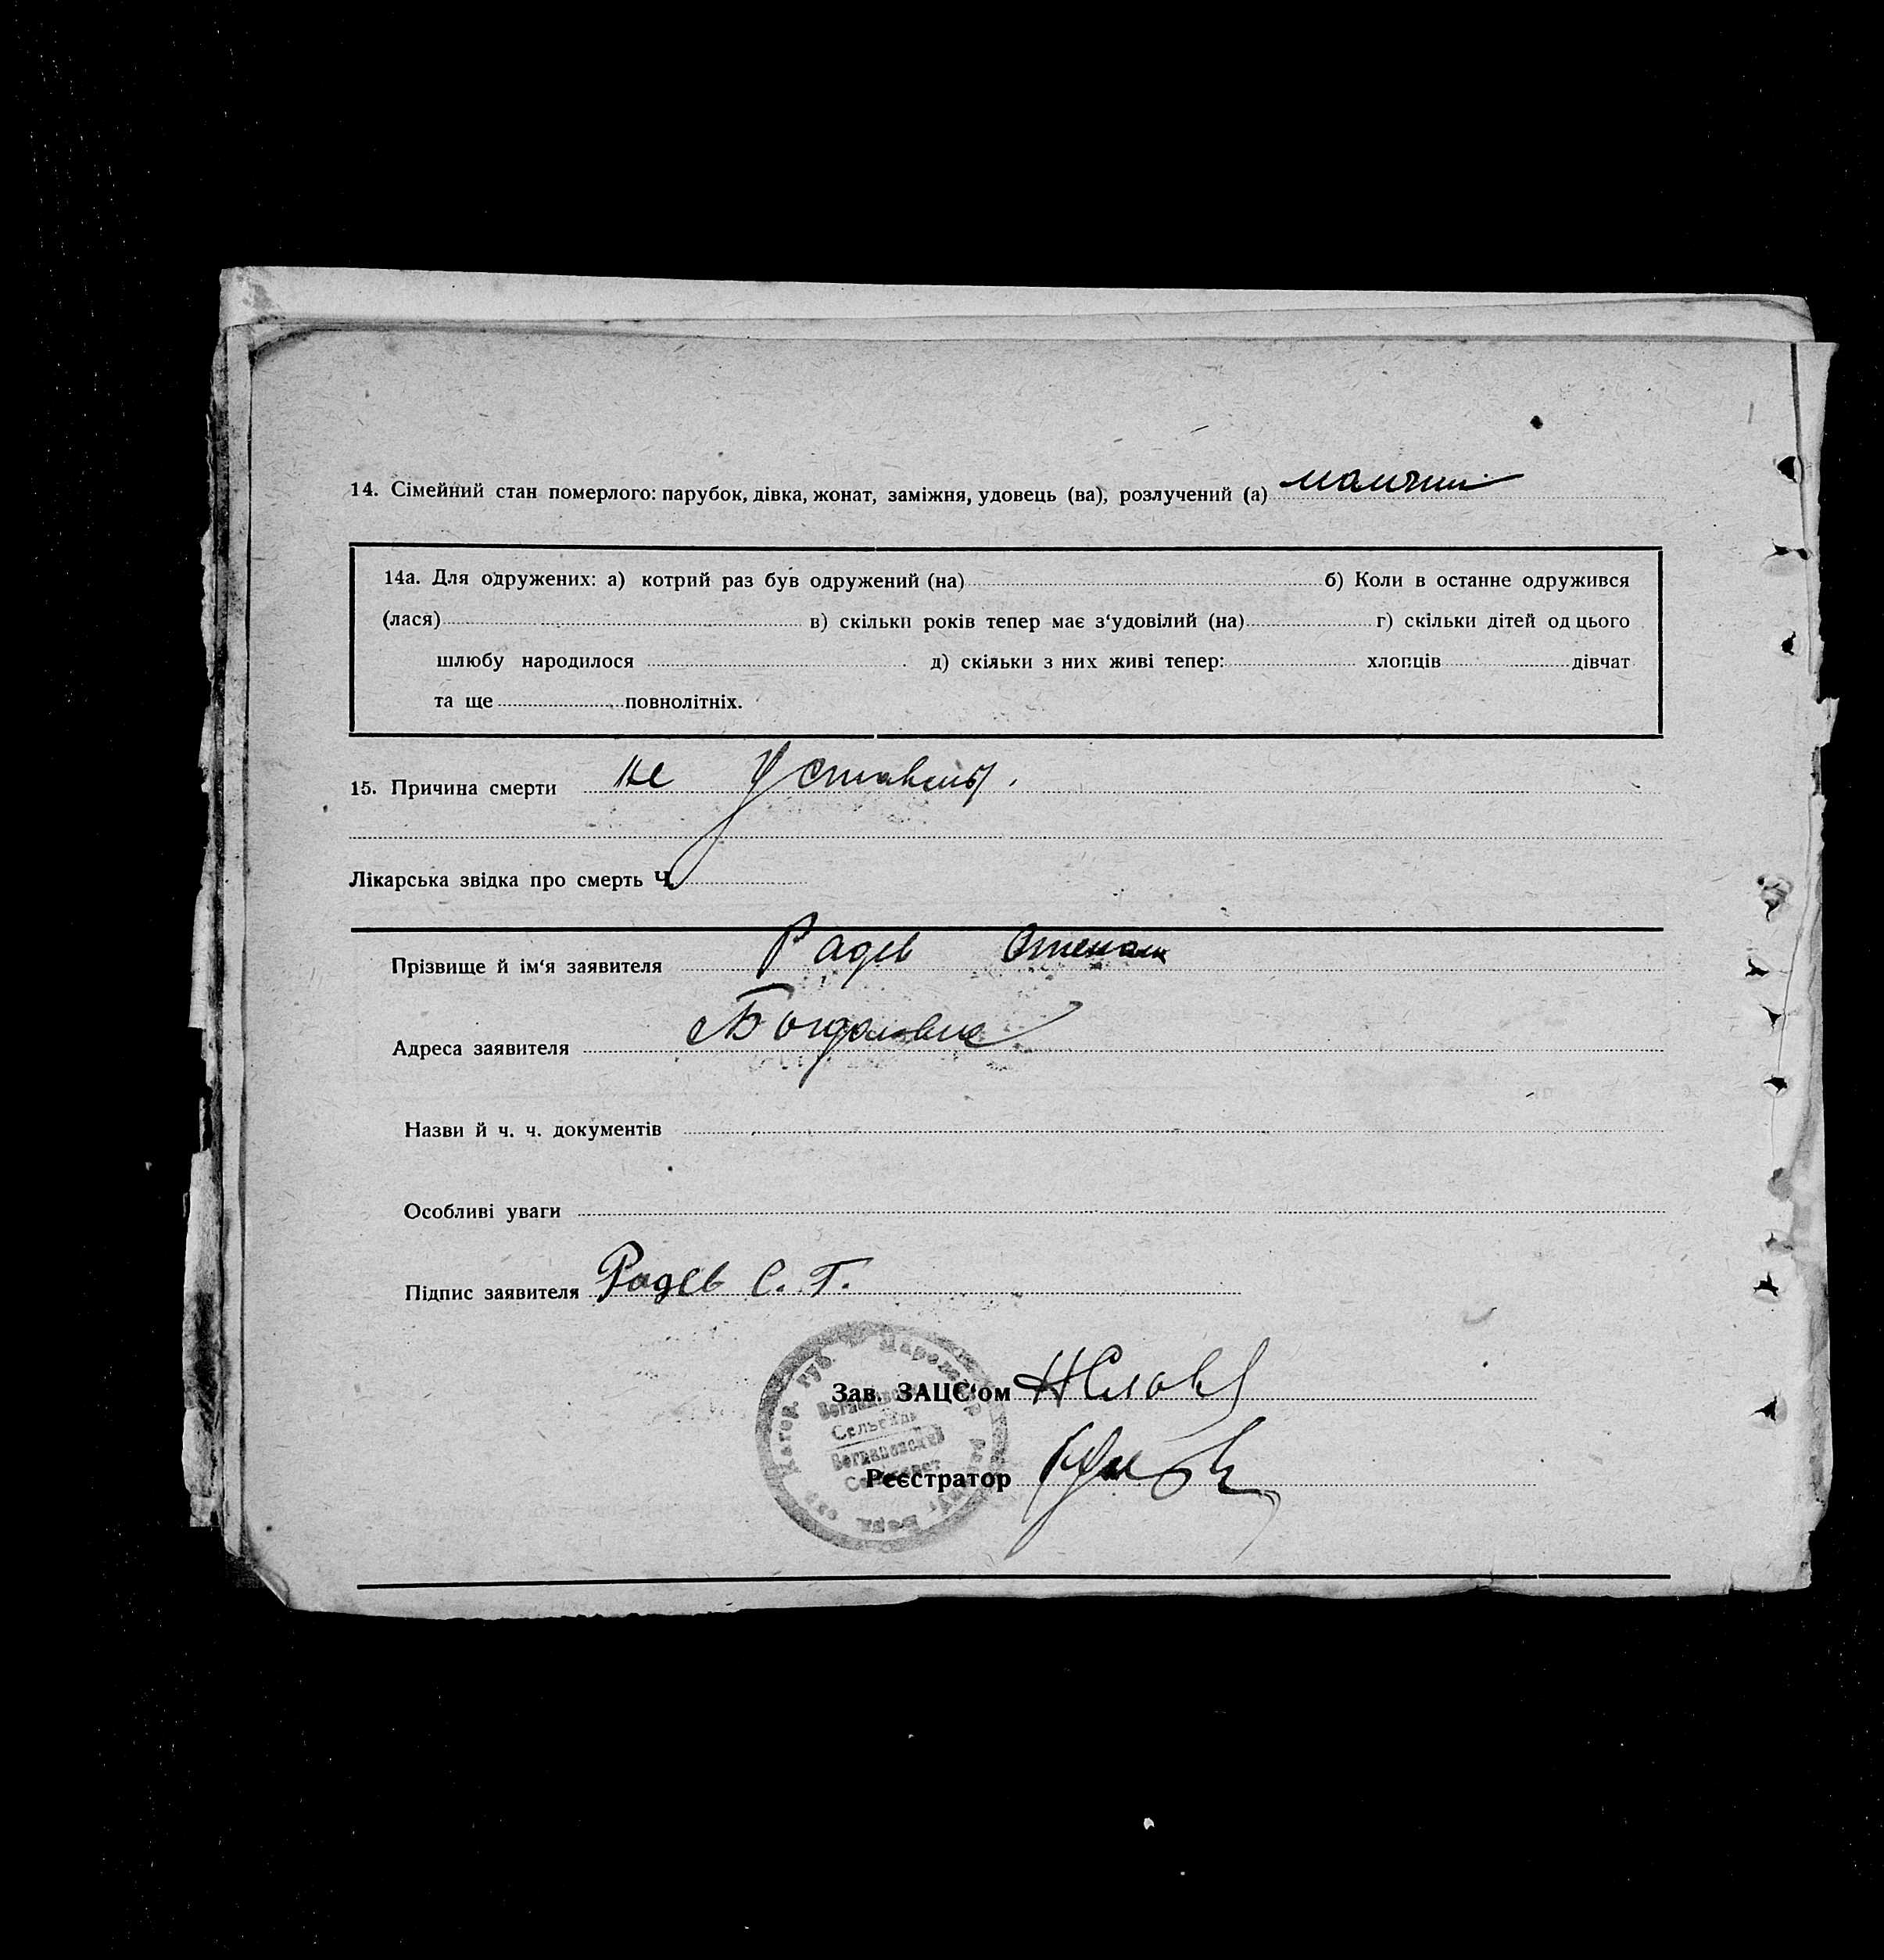 14. Сімейний стан померлого: парубок, дівка, жонат, заміжня, удовець (ва), розлучений (а)
14а. Для одружених: а) котрий раз був одружений (на) б) Коли в останне одружився
(лася) в) скільки років тепер має з‘удовілий (на) г) скільки дітей од цього
шлюбу народилося д) скільки з них живі тепер: хлопців дівчат
та ще повнолітніх.
15. Причина смерти не
Лікарська звідка про смерть Ч.
Прізвище й ім‘я заявителя Радев Степан
Адреса заявителя
Назви й ч. ч. документів
Особливі уваги
Підпис заявителя Радев С. Г.
Зав. ЗАЦС‘ом
Реєстратор